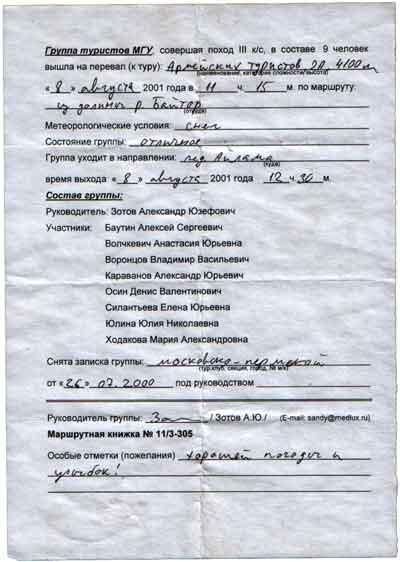 Группа туристов МГУ, совершая поход III к/с, в составе 9 человек
вышла на перевал (к туру): Армейских туристов 2А, 4100 м
(наименование, категория сложности/высота)
« 8 » августа 2001 года в 11 ч. 15 м. по маршруту:
из долины р. Байтор
(откуда)
Метеорологические условия: снег
Состояние группы: отличное
Группа уходит в направлении: лед Айлама
(куда)
время выхода: « 8 » августа 2001 года 12 ч 30 м.
Состав группы:
Руководитель: Зотов Александр Юзефович
Участники: Баутин Алексей Сергеевич
Волчкевич Анастасия Юрьевна
Воронцов Владимир Васильевич
Караванов Александр Юрьевич
Осин Денис Валентинович
Силантьева Елена Юрьевна
Юлина Юлия Николаевна
Ходакова Мария Александровна
Снята записка группы: московско-пермской
(тур.клуб, секция, город, № м/к)
от « 26 » 07. 2000 под руководством
Руководитель группы: / Зотов А.Ю./ (E-mail: sandy@medlux.ru)
Маршрутная книжка № 11/3-305
Особые отметки (пожелания) хорошей погоды и
улыбок!